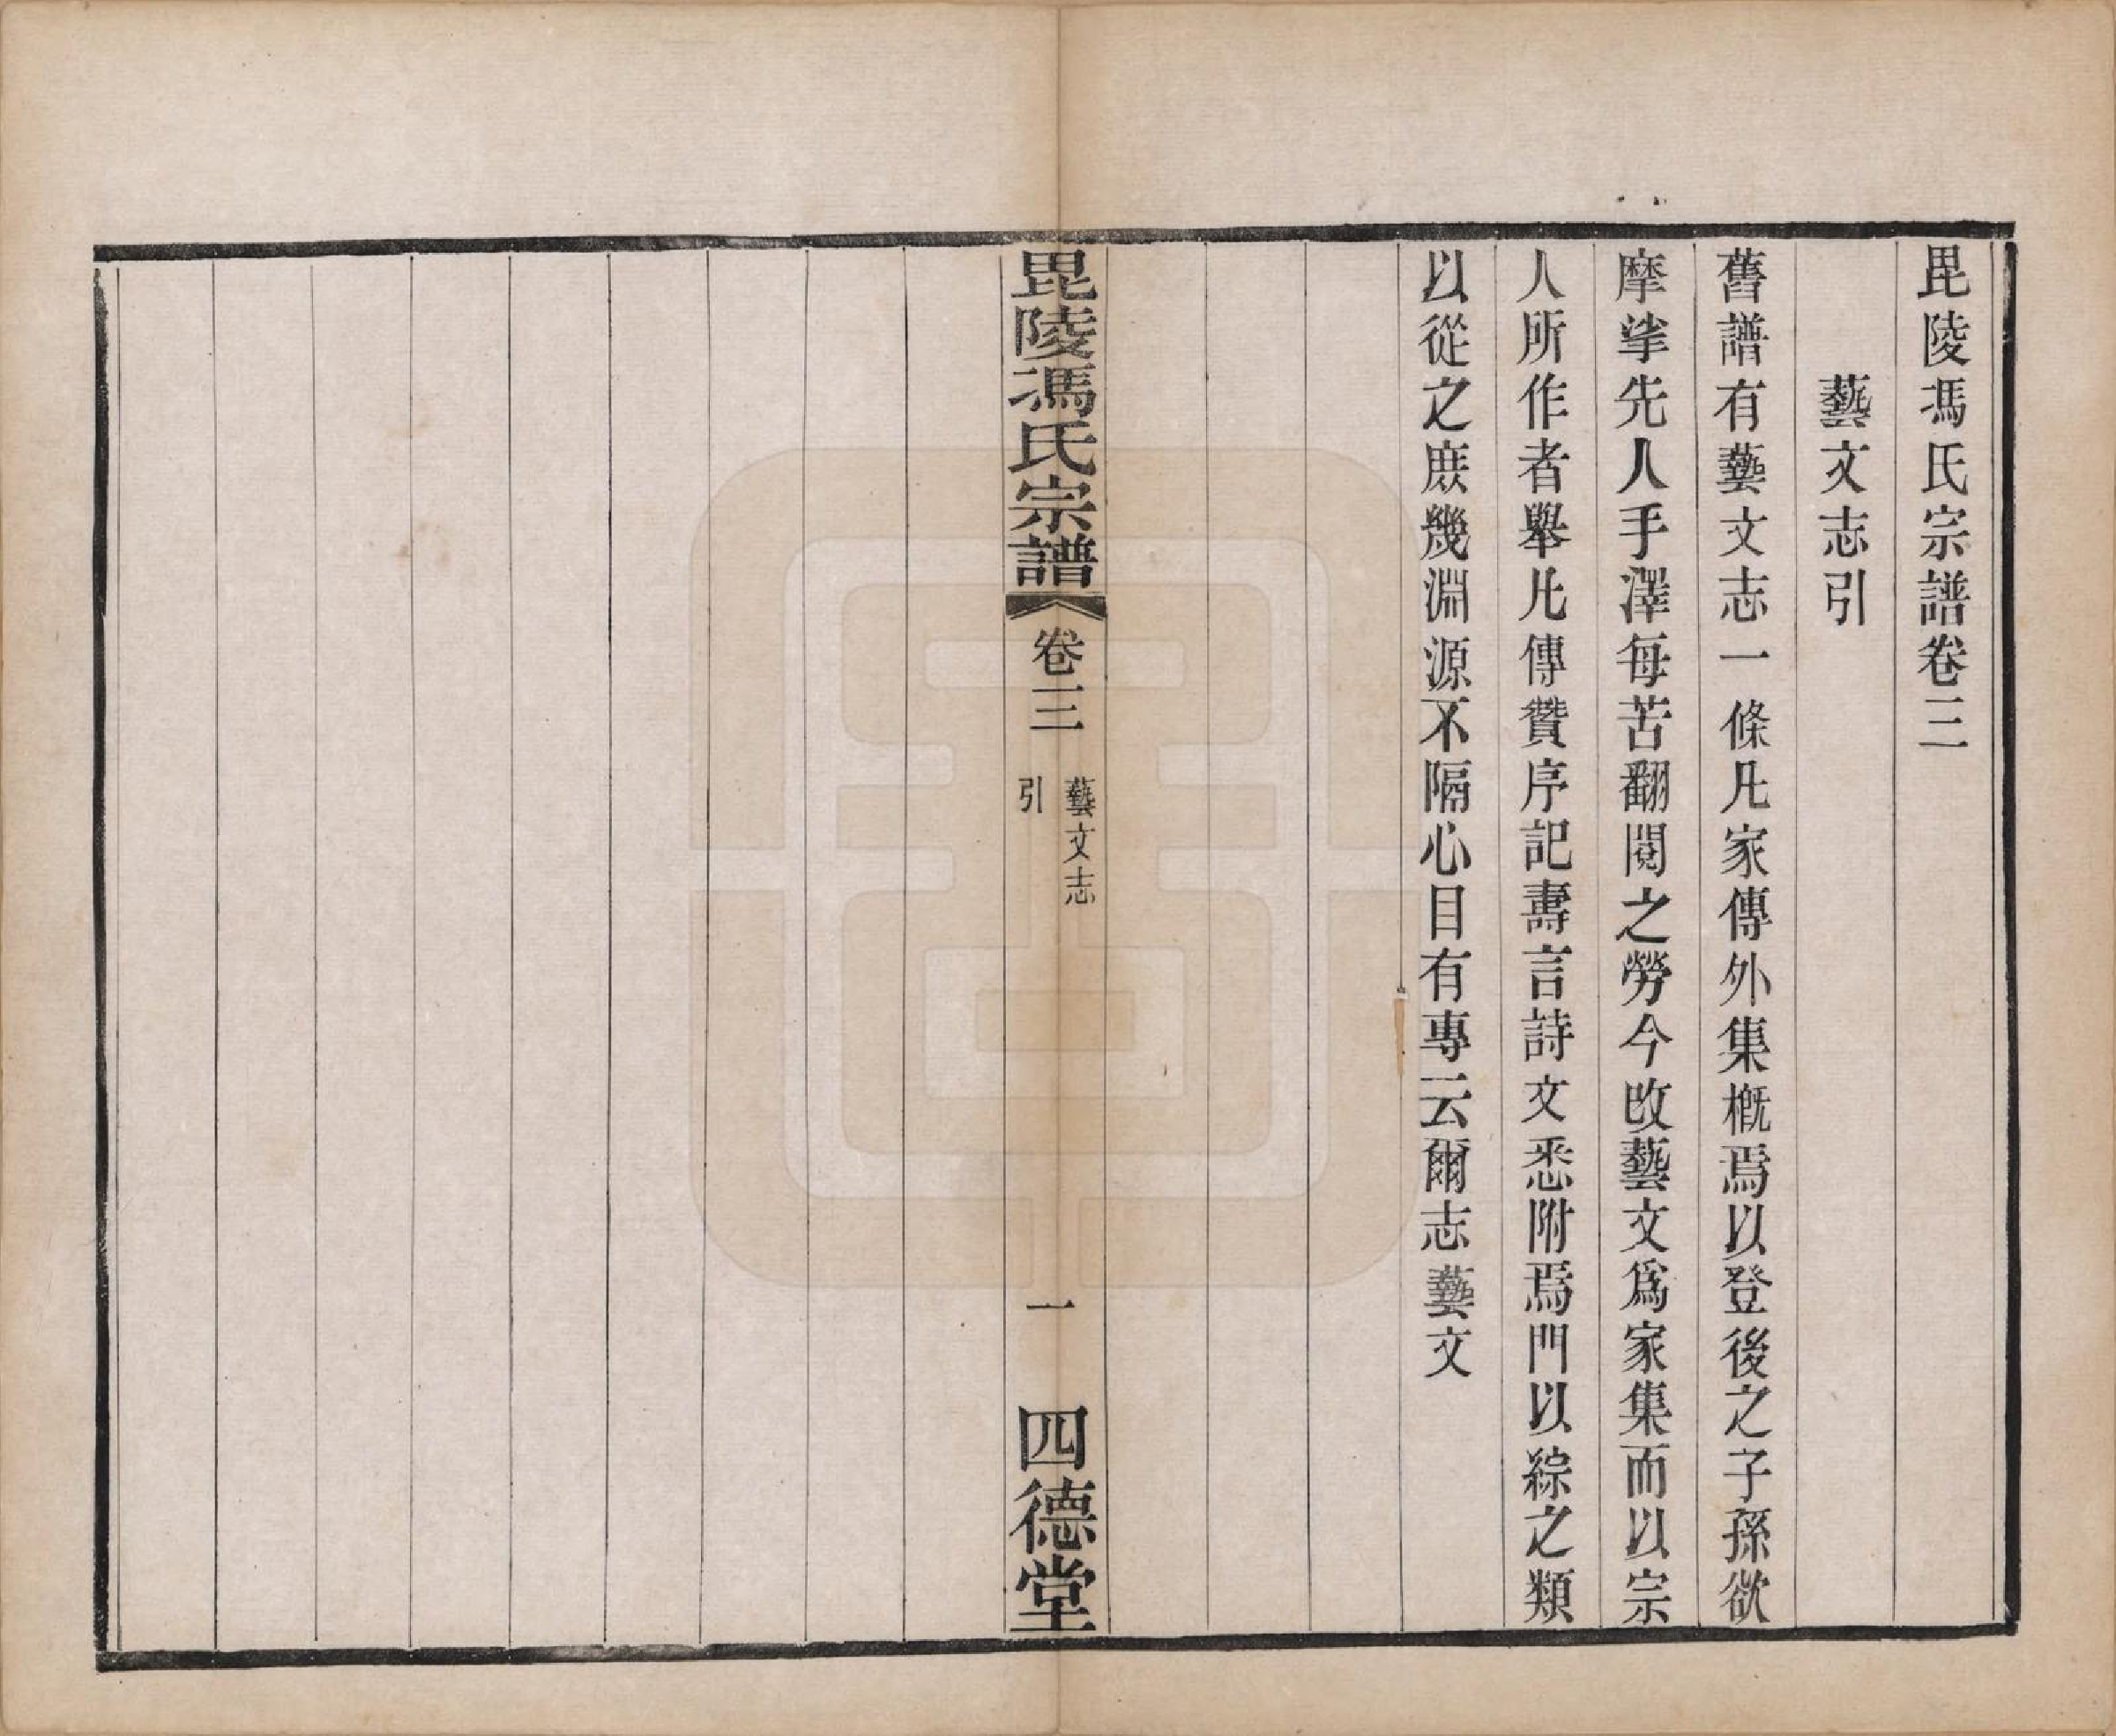 毘陵馮氏宗譜卷三
藝文志引
舊譜有藝文志一條凡家傳外集概焉以登後之子孫欲
摩挲先人手澤每苦翻閱之勞今改藝文爲家集而以宗
人所作者舉凡傳贊序記壽言詩文悉附焉門以綜之類
以從之庶幾淵源不隔心目有專云爾志藝文
毘陵馮氏宗譜
卷三
藝文志
引
一
四德堂